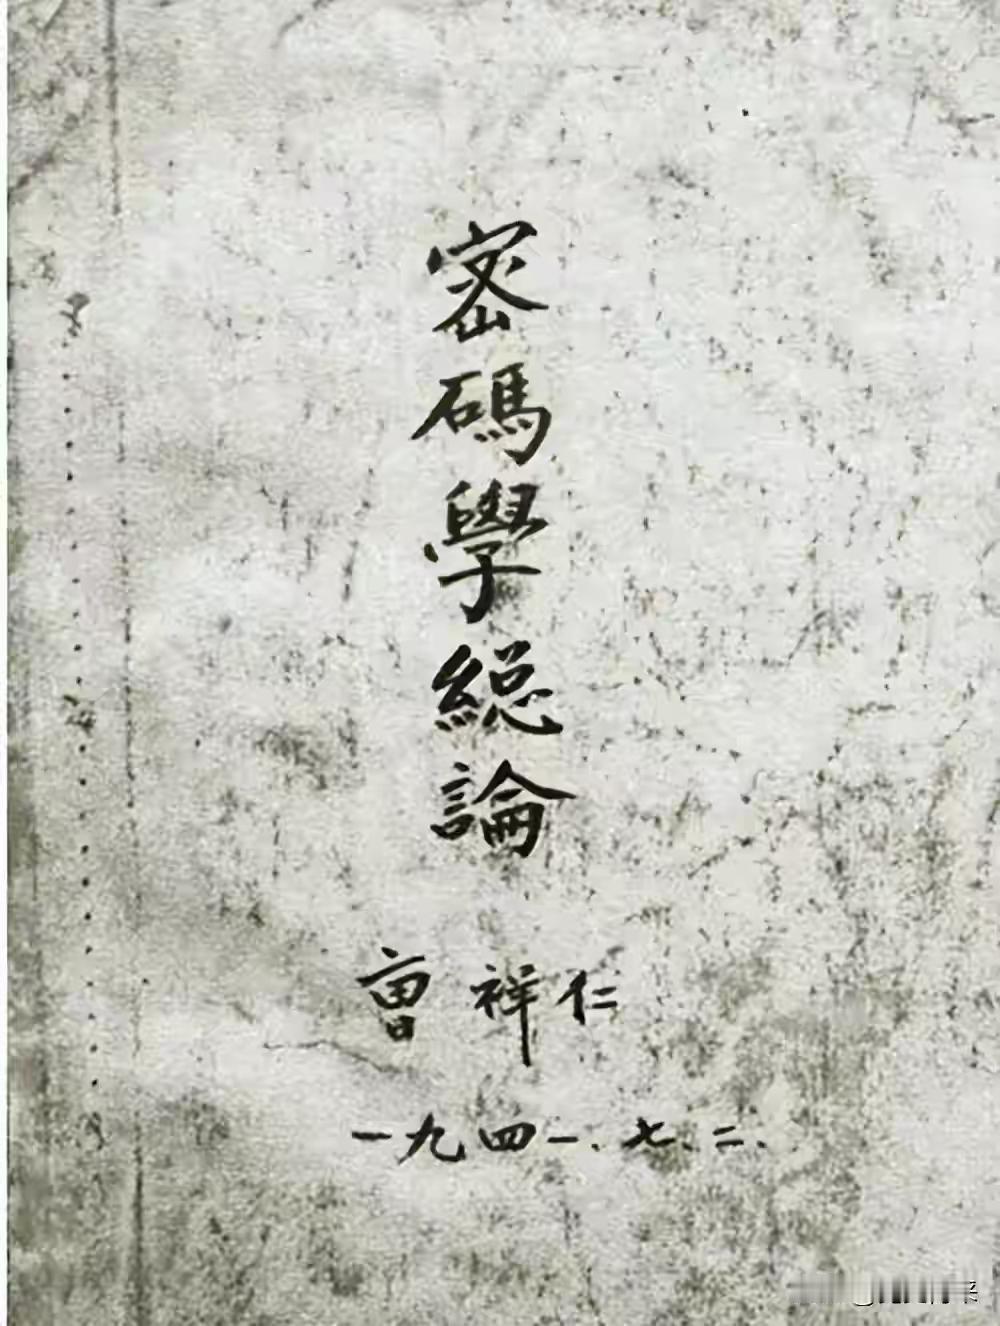 密碼學総論
曺祥仁
一九四一.七.二.